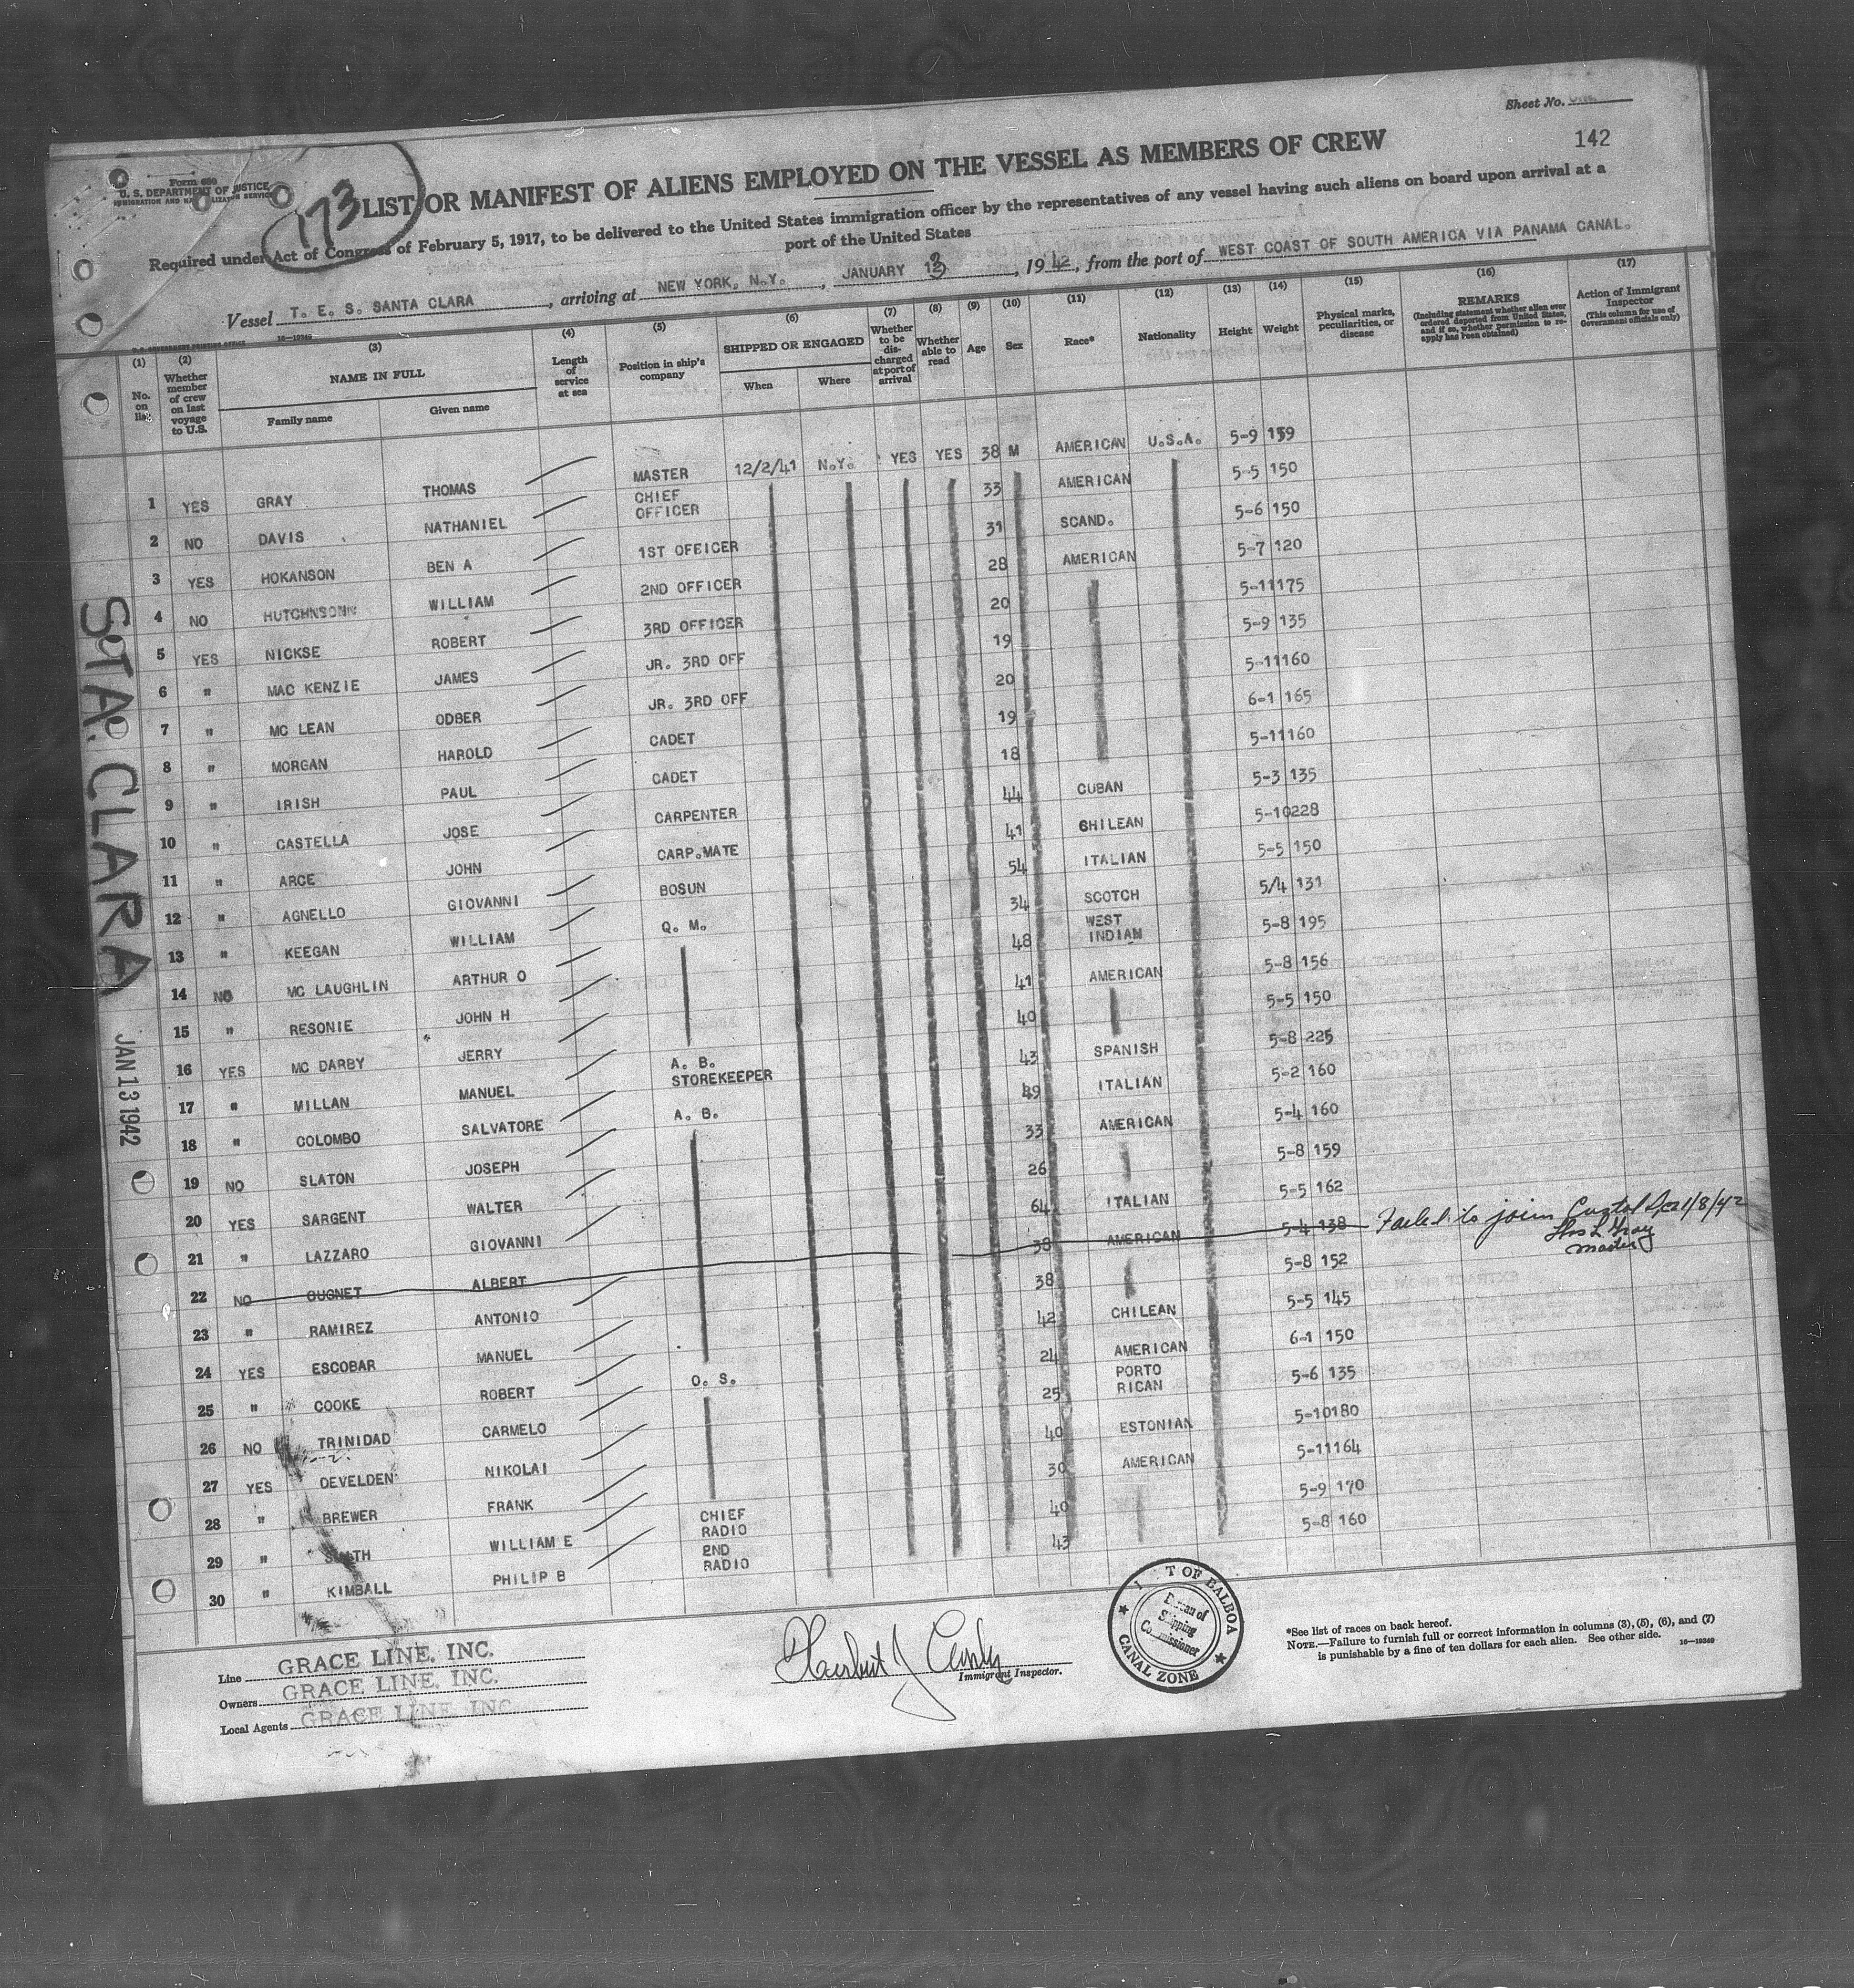 Sheet No.
142
Form 680
U. S. DEPARTMENT OF JUSTICE
IMMIGRATION AND NATURALIZATION SERVICE
173
LIST OR MANIFEST OF ALIENS EMPLOYED ON THE VESSEL AS MEMBERS OF CREW
Required under Act of Congress of February 5, 1917, to be delivered to the United States immigration officer by the representatives of any vessel having such aliens on board upon arrival at a
port of the United States
Vessel T. E. S. SANTA CLARA , arriving at NEW YORK, N.Y. , JANUARY 13 , 1942, from the port of WEST COAST OF SOUTH AMERICA VIA PANAMA CANAL.
U.S. GOVERNMENT PRINTING OFFICE 16—19349
(1) No. on list
(2) Whether member of crew on last voyage to U.S.
(3) NAME IN FULL Family name Given name
(4) Length of service at sea
(5) Position in ship's company
(6) SHIPPED OR ENGAGED When Where
(7) Whether to be discharged at port of arrival
(8) Whether able to read
(9) Age
(10) Sex
(11) Race*
(12) Nationality
(13) Height
(14) Weight
(15) Physical marks, peculiarities, or disease
(16) REMARKS (Including statement whether alien ever ordered deported from United States, and if so, whether permission to reapply has been obtained)
(17) Action of Immigrant Inspector (This column for use of Government officials only)
1 YES GRAY THOMAS MASTER 12/2/41 N.Y. YES YES 38 M AMERICAN U.S.A. 5-9 159
2 NO DAVIS NATHANIEL CHIEF OFFICER 33 AMERICAN 5-5 150
3 YES HOKANSON BEN A 1ST OFFICER 31 SCAND. 5-6 150
4 NO HUTCHNSONN WILLIAM 2ND OFFICER 28 AMERICAN 5-7 120
5 YES NICKSE ROBERT 3RD OFFICER 20 5-11 175
6 " MAC KENZIE JAMES JR. 3RD OFF 19 5-9 135
7 " MC LEAN ODBER JR. 3RD OFF 20 5-11 160
8 " MORGAN HAROLD CADET 19 6-1 165
9 " IRISH PAUL CADET 18 5-11 160
10 " CASTELLA JOSE CARPENTER 44 CUBAN 5-3 135
11 " ARCE JOHN CARP.MATE 41 CHILEAN 5-10 228
12 " AGNELLO GIOVANNI BOSUN 54 ITALIAN 5-5 150
13 " KEEGAN WILLIAM Q. M. 34 SCOTCH 5/4 131
14 NO MC LAUGHLIN ARTHUR O 48 WEST INDIAN 5-8 195
15 " RESONIE JOHN H 41 AMERICAN 5-8 156
16 YES MC DARBY JERRY 40 5-5 150
17 " MILLAN MANUEL A. B. STOREKEEPER 43 SPANISH 5-8 225
18 " COLOMBO SALVATORE A. B. 49 ITALIAN 5-2 160
19 NO SLATON JOSEPH 33 AMERICAN 5-4 160
20 YES SARGENT WALTER 26 5-8 159
21 " LAZZARO GIOVANNI 64 ITALIAN 5-5 162
22 NO GUGNET ALBERT 38 AMERICAN 5-4 138 Failed to join Cristobal 1/8/42
Thos L Gray
Master
23 " RAMIREZ ANTONIO 38 5-8 152
24 YES ESCOBAR MANUEL 42 CHILEAN 5-5 145
25 " COOKE ROBERT 24 AMERICAN 6-1 150
26 NO TRINIDAD CARMELO O. S. 25 PORTO RICAN 5-6 135
27 YES OEVELDEN NIKOLAI 40 ESTONIAN 5-10 180
28 " BREWER FRANK 30 AMERICAN 5-11 164
29 " WILLIAM E CHIEF RADIO 40 5-9 170
30 " KIMBALL PHILIP B 2ND RADIO 43 5-8 160
STA. CLARA
JAN 13 1942
Line GRACE LINE, INC.
Owners GRACE LINE, INC.
Local Agents GRACE LINE, INC.
Immigrant Inspector.
T OF BALBOA
Bureau of
Shipping
Commissioner
CANAL ZONE
*See list of races on back hereof.
NOTE.—Failure to furnish full or correct information in columns (3), (5), (6), and (7)
is punishable by a fine of ten dollars for each alien. See other side. 16—19349